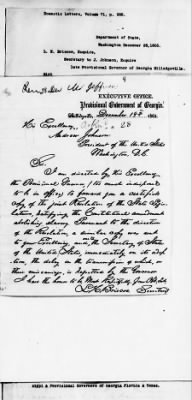 Domestic Letters, Volume 71, p. 
Department of State,
Washington December 28, 1865.
L. H. Briscoe, Esquire,
Secretary to J. Johnson, Esquire
Late Provisional Governor of Georgia Milledgeville.
EXECUTIVE OFFICE,
Provisional Government of Georgia,
Milledgeville, December 18th 1865
His Excellency,
Andrew Johnson
President of the United States
Washington, D.C.
Sir
I am directed by His Excellency
the Provisional Governor, (
to forward you a certified
copy of the joint Resolution of the State Legis-
lature, ratifying the Constitutional amendment
abolishing slavery. Pursuant to the direction
of the Resolution, a similar copy was sent
to your Excellency, and the Secretary of State
of the United States, immediately on its adop-
tion, the delay in the transmission of which, or
their miscarriage, is regretted by the Governor
I have the honor to be Most Respectfully Your Obt. Servt.
L. H. Briscoe Secretary
Provisional Governors of Georgia Florida & Texas.